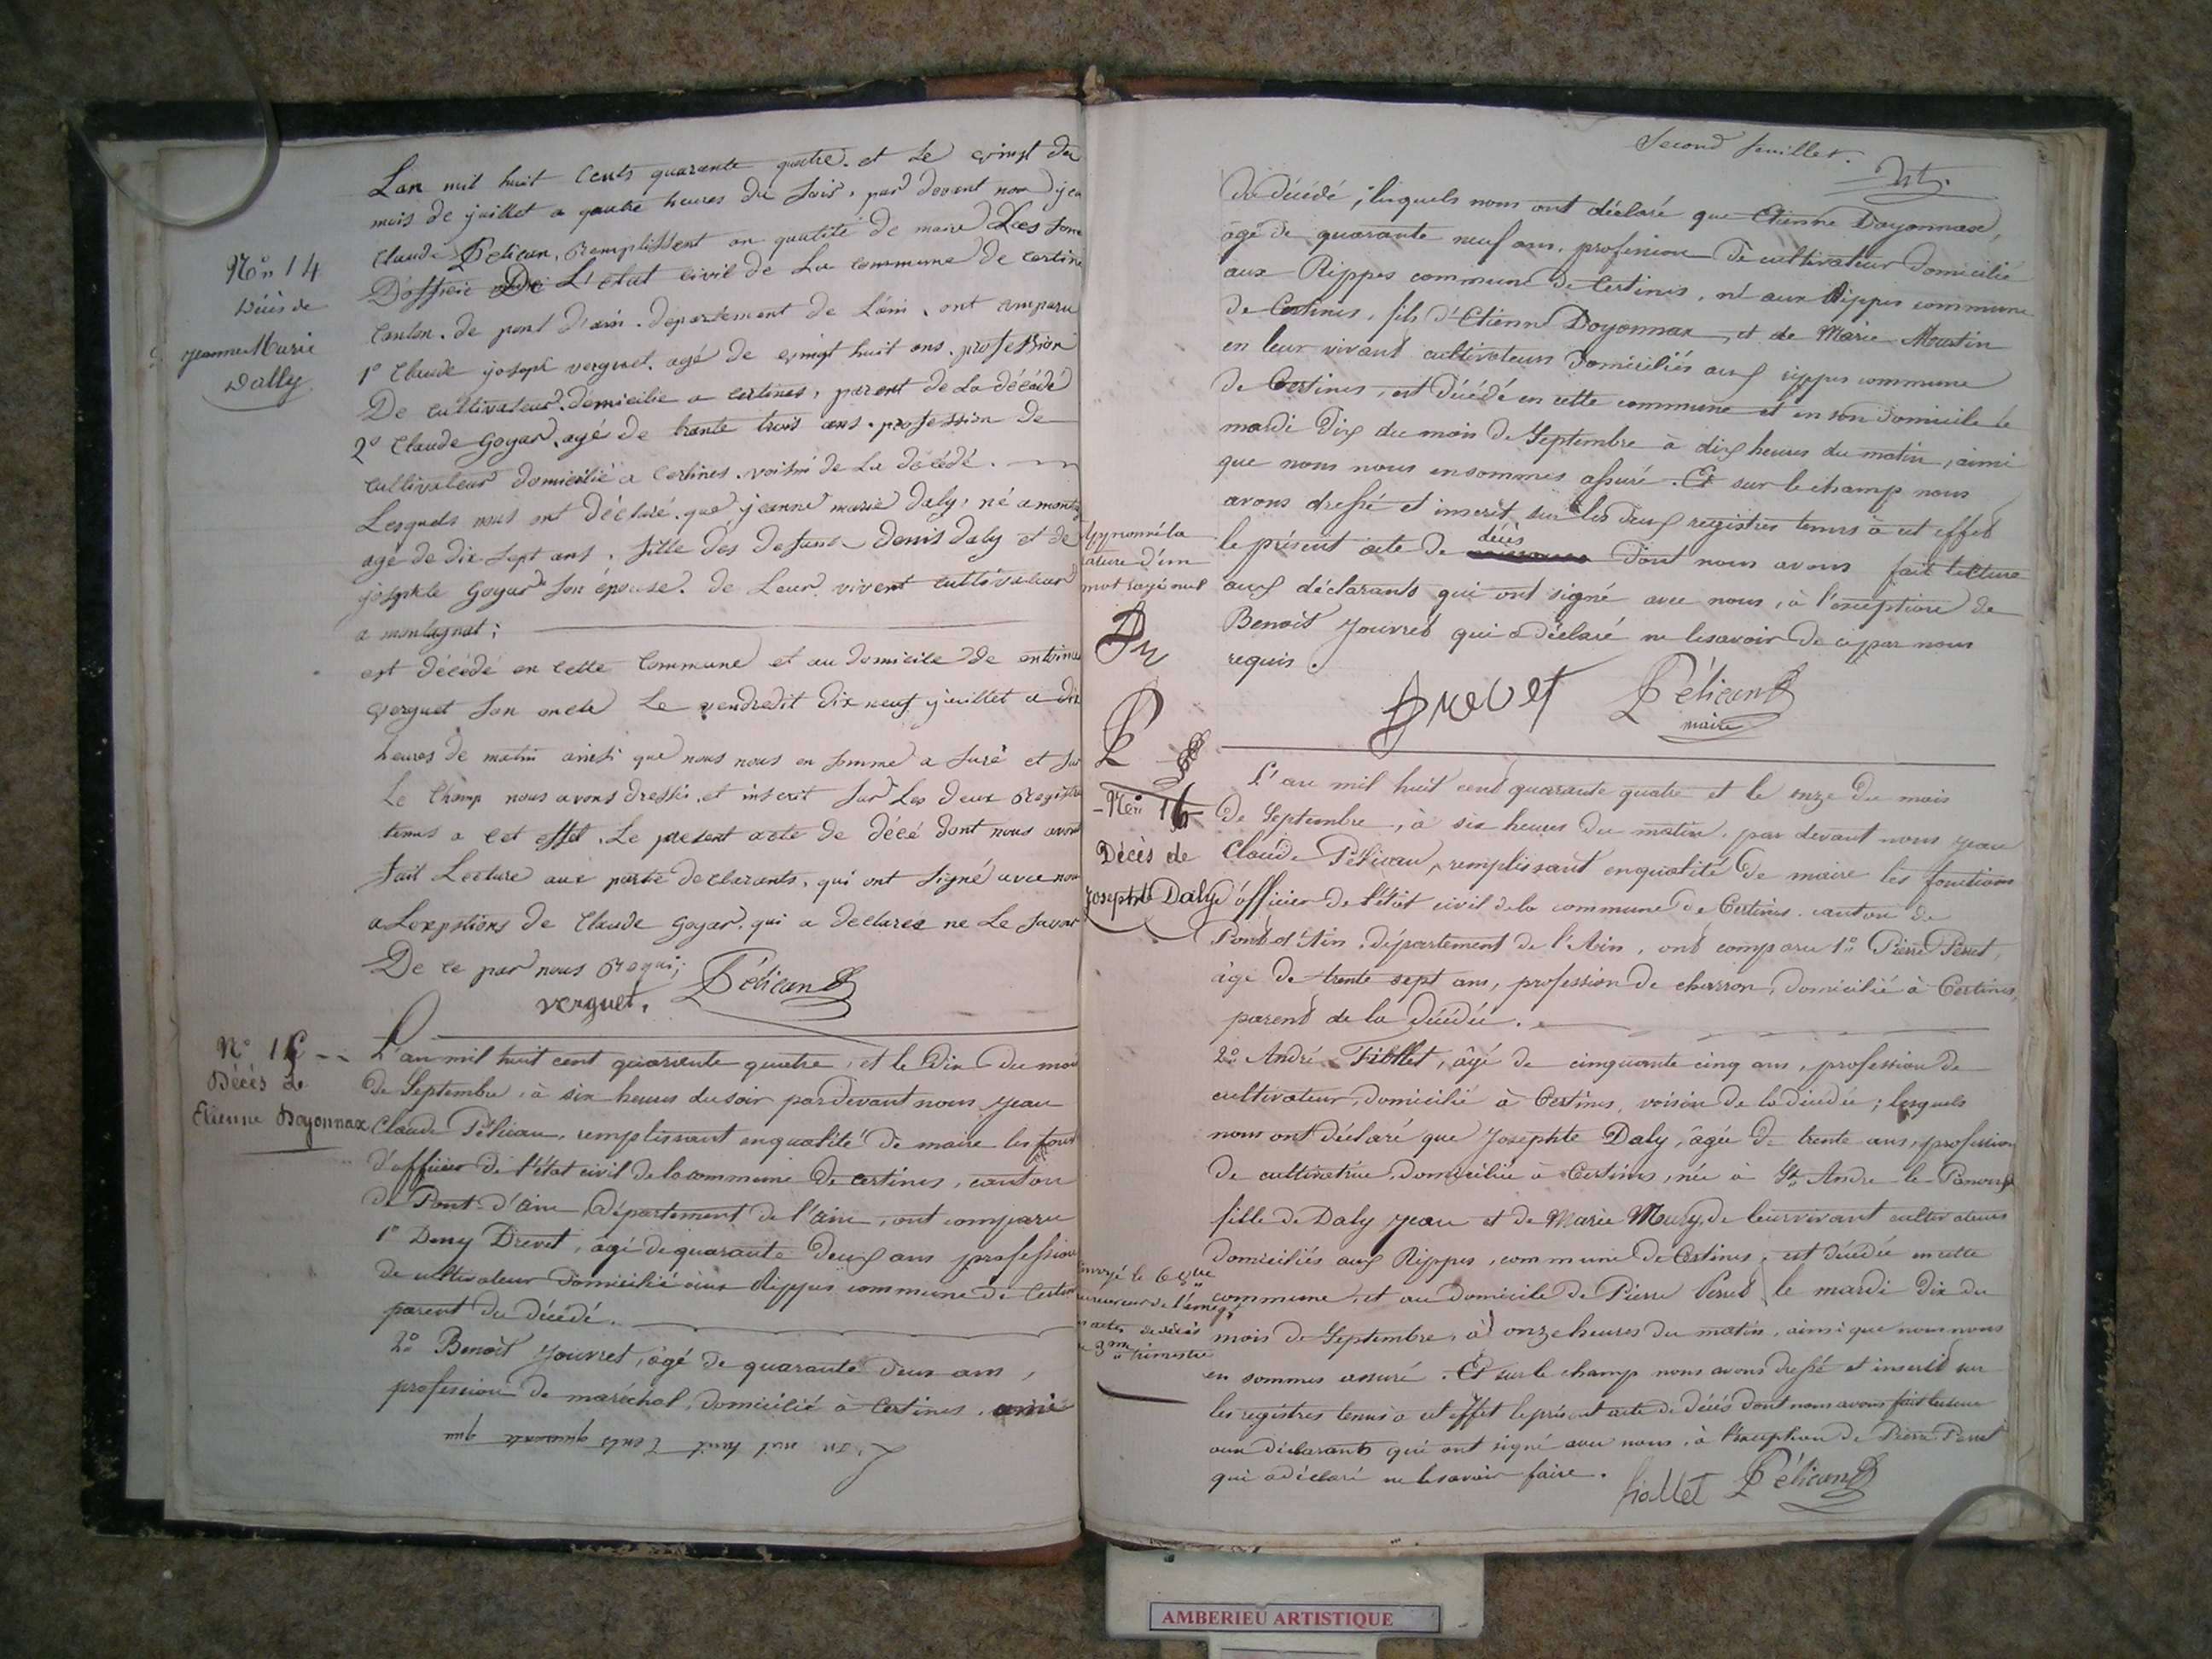 Nº 14
Décès de
Jeanne Marie
Dally
Lan mil huit Cents quarante quatre. et Le vingt du
mois de juillet a quatre heures du Soir, par devant nou jen
Claude Pelican, Remplissent en qualité de maire Les fonc
D'officie De L'etat civil de La commune de certine
Canton de pont d'ain. departement de L'ain, ont comparu
1º Claude joseph verguet. agé de vingt huit ans. profession
De cultivateur. demicilie a certines, parent de La décédé
2º Claude Goyar. agé de trante trois ans. profession de
cultivateur domicilié a certines. voisin de La décédé.
Lesquels nous ont déclaré. que jeanne marie daly, né a monta
agé de dix Sept ans. fille des defunt Denis daly et de
josephte Goyar Son épouse. de Leur vivent cultivateur
a montagnat;
est décédé en cette Commune et au domicile de entoine
verguet Son oncle Le vendredit dix neuf juillet a dix
heures de matin ainsi que nous nous en Somme a Suré et Sur
Le Champ nous avons dressé. et inscrit Sur Les deux Registre
tenus a cet effet. Le present acte de décé dont nous avont
fait Lecture aux partie declarants, qui ont Signé avec nou
a Lexpstions de Claude Goyar. qui a declarés ne Le Savoir
De ce par nous Requi;
verguet. Pélican
Nº 15
Décès de
Etienne Doyonnax
L'an mil huit cent quarante quatre, et le dix du moi
de Septembre, à six heures du soir pardevant nous Jean
Claude Pélican, remplissant en qualité de maire les fonct
d'officier de l'état civil de la commune de certines, canton
de Pont-d'ain, Département de l'ain, ont comparu
1º Deny Drevet, âgé de quarante deux ans profession
de cultivateur domicilié aux Rippes commune de Certin
parent du décédé.
2º Benoît Jouvret, âgé de quarante deux ans,
profession de maréchal, domicilié à Certines, ami
L'an mil huit Cents quarante qua
Second feuillet.
du décédé; lesquels nous ont déclaré que Etienne Doyonnax,
âgé de quarante neuf ans, profession de cultivateur domicilié
aux Rippes commune de Certines, né aux Rippes commune
de Certines, fils d'Etienne Doyonnax, et de Marie Martin
en leur vivant cultivateurs domiciliés aux rippes commune
de Certines, est décédé en cette commune et en son domicile le
mardi dix du mois de Septembre à dix heures du matin, ainsi
que nous nous en sommes assuré. Et sur le champ nous
avons dressé et inscrit sur les deux registres tenus à cet effet
le présent acte de décès dont nous avons fait lecture
aux déclarants qui ont signé avec nous, à l'exception de
Benoît Jouvret qui a déclaré ne le savoir de ce par nous
requis.
Approuvé la
rature d'un
mot rayé nul
Drevet Pélican
maire
Nº 16
Décès de
Josephte Daly
L'an mil huit cent quarante quatre et le onze du mois
de Septembre, à six heures du matin, par devant nous Jean
Claude Pélican, remplissant en qualité de maire les fonctions
d'officier de l'état civil de la commune de Certines, canton de
Pont d'Ain, département de l'Ain, ont comparu 1º Pierre Perret,
âgé de trente sept ans, profession de charron, domicilié à Certines,
parent de la décédée.
2º André Fiollet, âgé de cinquante cinq ans, profession de
cultivateur, domicilié à Certines, voisin de la décédée; lesquels
nous ont déclaré que Josephte Daly, âgée de trente ans, profession
de cultivatrice, domiciliée à Certines, née à St André-le-Panoux
fille de Daly Jean et de Marie Mury, de leur vivant cultivateurs
domiciliés aux Rippes, commune de Certines, est décédée en cette
commune, et au domicile de Pierre Perret le mardi dix du
mois de Septembre, à onze heures du matin, ainsi que nous nous
en sommes assuré. Et sur le champ nous avons dressé et inscrit sur
les registres tenus à cet effet le présent acte de décès dont nous avons fait lecture
aux déclarants qui ont signé avec nous, à l'exception de Pierre Perret
qui a déclaré ne le savoir faire.
fiollet Pélican
actes de décès
trimestre
AMBERIEU ARTISTIQUE